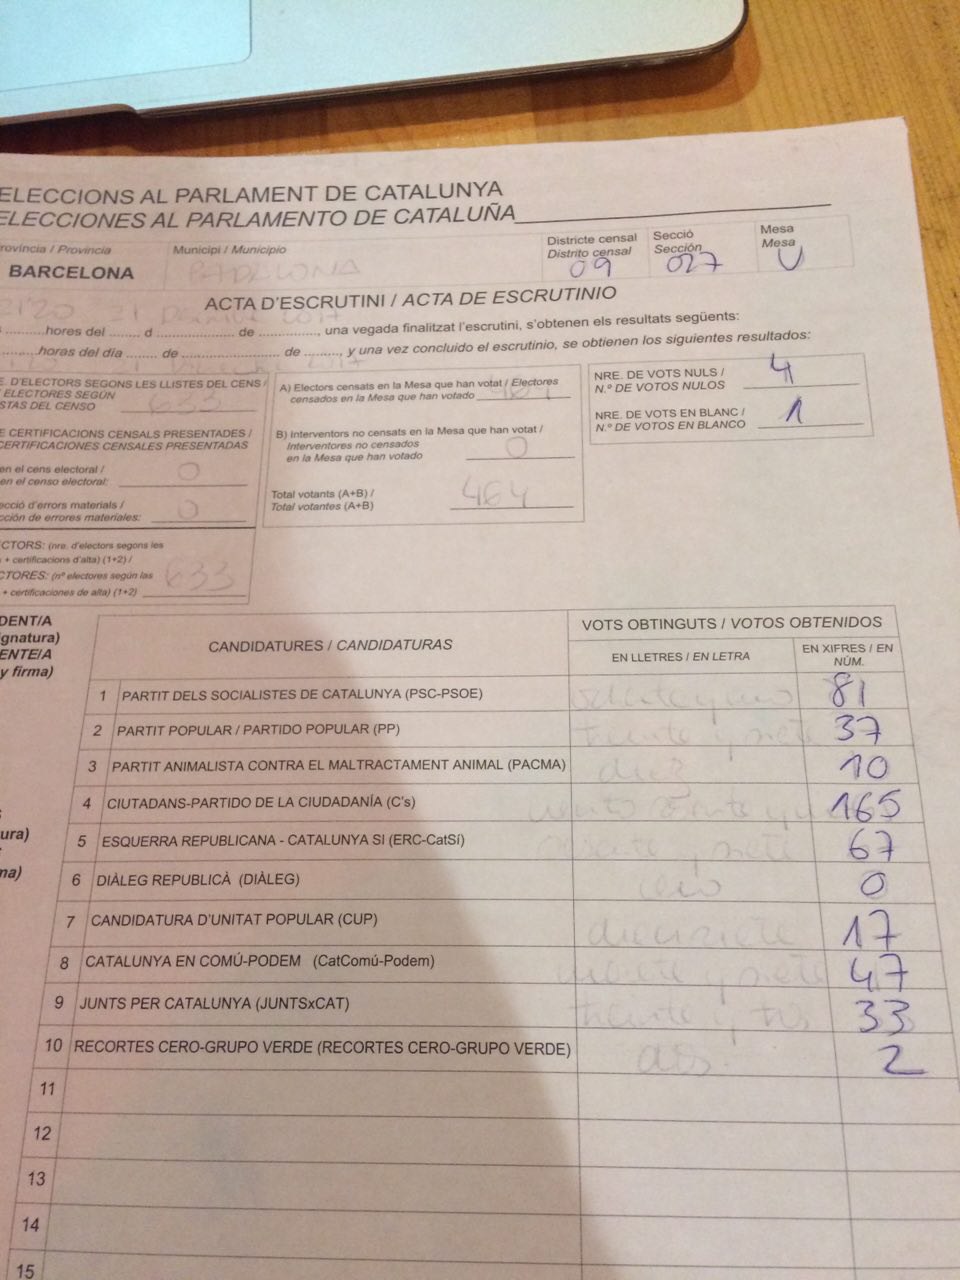 ELECCIONS AL PARLAMENT DE CATALUNYA
ELECCIONES AL PARLAMENTO DE CATALUÑA
rovíncia / Provincia Municipi / Municipio Districte censal Secció Mesa
Distrito censal Sección Mesa
BARCELONA BADALONA 09 027 U
ACTA D'ESCRUTINI / ACTA DE ESCRUTINIO
hores del d de , una vegada finalitzat l'escrutini, s'obtenen els resultats següents:
horas del día de de , y una vez concluido el escrutinio, se obtienen los siguientes resultados:
E. D'ELECTORS SEGONS LES LLISTES DEL CENS /
ELECTORES SEGÚN
STAS DEL CENSO 633
E CERTIFICACIONS CENSALS PRESENTADES /
CERTIFICACIONES CENSALES PRESENTADAS
en el cens electoral /
en el censo electoral: 0
ecció d'errors materials /
cción de errores materiales: 0
CTORS: (nre. d'electors segons les
+ certificacions d'alta) (1+2) /
CTORES: (nº electores según las
+ certificaciones de alta) (1+2) 633
A) Electors censats en la Mesa que han votat / Electores
censados en la Mesa que han votado 464
B) Interventors no censats en la Mesa que han votat /
Interventores no censados
en la Mesa que han votado 0
Total votants (A+B) /
Total votantes (A+B) 464
NRE. DE VOTS NULS /
N.º DE VOTOS NULOS 4
NRE. DE VOTS EN BLANC /
N.º DE VOTOS EN BLANCO 1
DENT/A
ignatura)
ENTE/A
y firma)
ura)
ma)
CANDIDATURES / CANDIDATURAS VOTS OBTINGUTS / VOTOS OBTENIDOS
EN LLETRES / EN LETRA EN XIFRES / EN
NÚM.
1 PARTIT DELS SOCIALISTES DE CATALUNYA (PSC-PSOE) ochenta y uno 81
2 PARTIT POPULAR / PARTIDO POPULAR (PP) treinta y siete 37
3 PARTIT ANIMALISTA CONTRA EL MALTRACTAMENT ANIMAL (PACMA) diez 10
4 CIUTADANS-PARTIDO DE LA CIUDADANÍA (C's) 165
5 ESQUERRA REPUBLICANA - CATALUNYA SI (ERC-CatSí) sesenta y siete 67
6 DIÀLEG REPUBLICÀ (DIÀLEG) cero 0
7 CANDIDATURA D'UNITAT POPULAR (CUP) diecisiete 17
8 CATALUNYA EN COMÚ-PODEM (CatComú-Podem) 47
9 JUNTS PER CATALUNYA (JUNTSxCAT) treinta y tres 33
10 RECORTES CERO-GRUPO VERDE (RECORTES CERO-GRUPO VERDE) dos 2
11
12
13
14
15